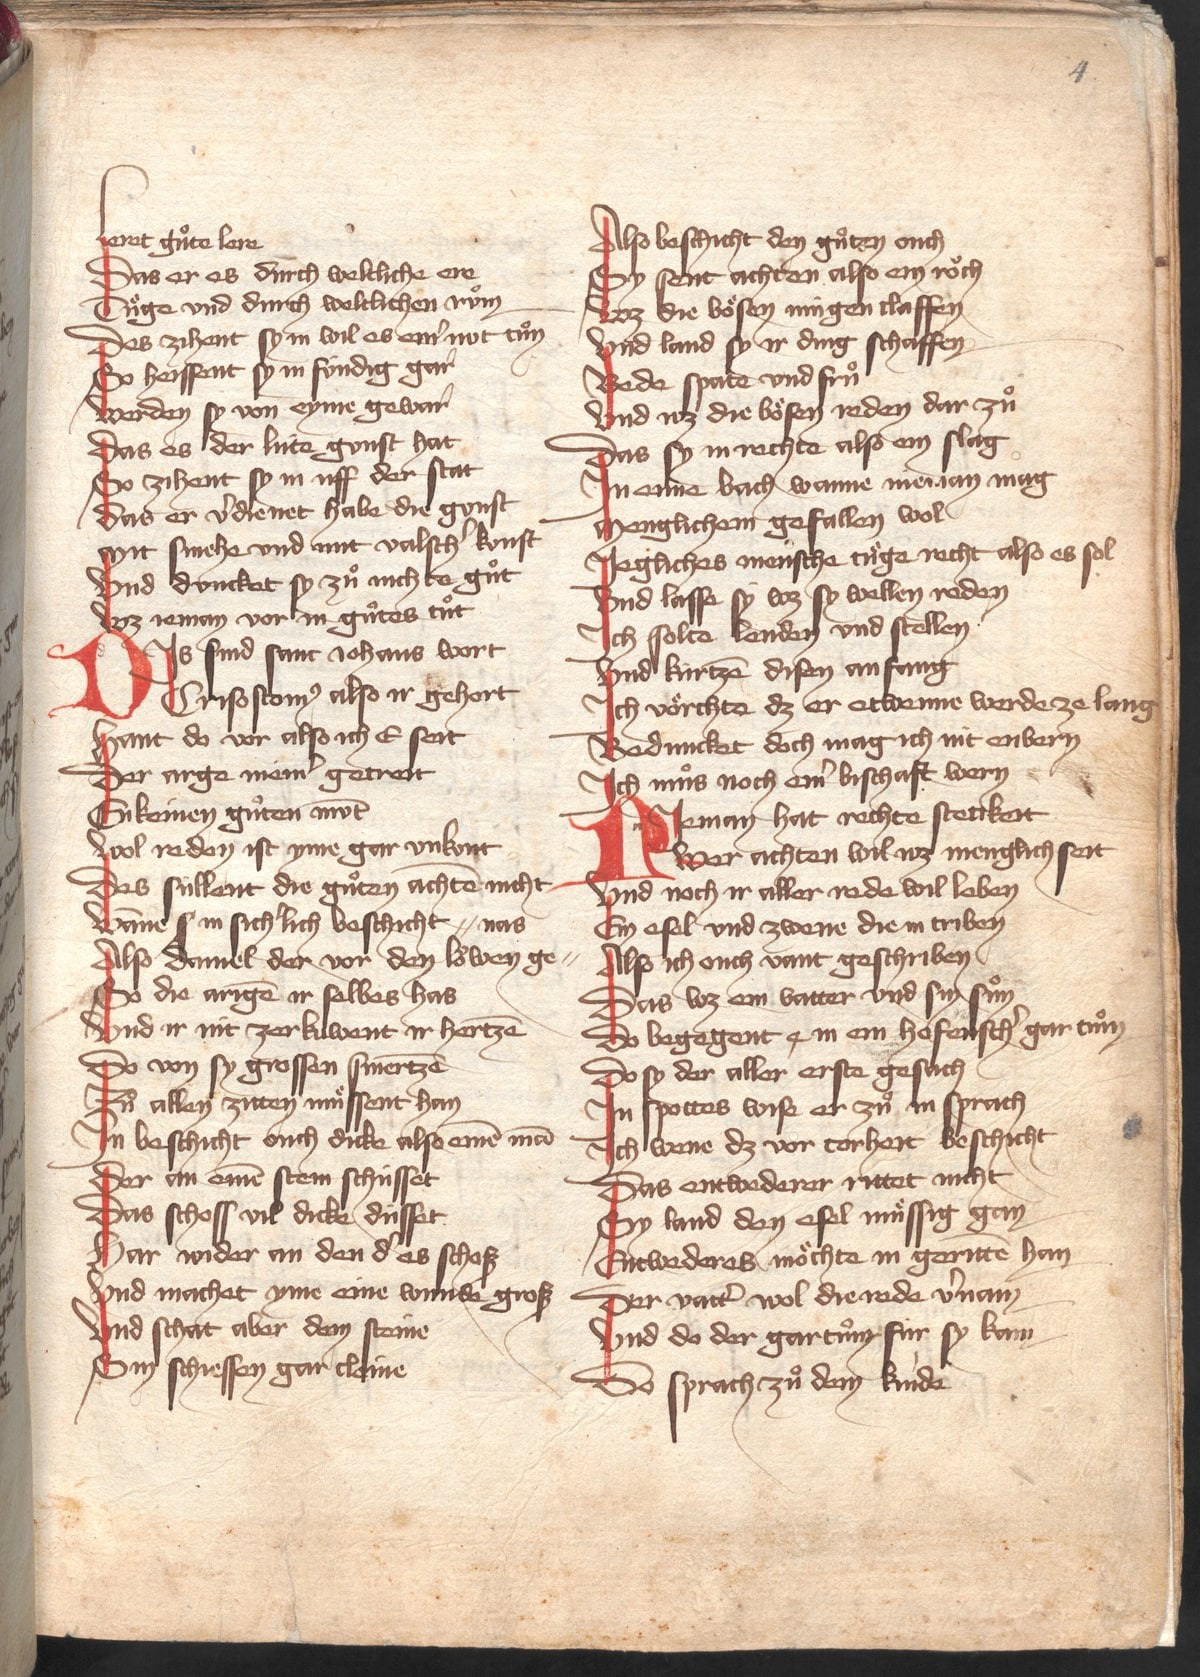 4
leret gůte lere
Das er es durch weltliche ere
Tůge vnd durch weltlichen rům
Des zihent sy in wil es eīr not tůn
So heissent sy in söndig gar
Werden sy von eyme gewar
Das es der lute gunst hat
So zihent sy in uff der stat
Das er v̓dienet habe die gunst
Mit smehe vnd mit valsch̓ konst
Vnd duncket sy zů nichte gůt
Wz ieman vor in gůtes tůt
Dis sind sant iohans wort
Crisostom̓ also ir gehort
Hant do vor also ich E seit
Der arge niem̓ getreit
Enkeinen gůten můt
Wol reden ist yme gar vnkont
Des sullent die gůten achtē nicht
Wāne s̓ in sich̓lich beschicht // nas
Also daniel der vor den löwen ge //
So die arigē ir selbes has
Vnd ir nit zerkuwent ir hertzē
Do von sy grossen smertzē
Zů allen ziten můssent han
In beschicht ouch dicke also einē mā
Der an einē stein schusset
Das schoss vil dicke dusset
Har wider an den d̓ es schoß
Vnd machet yme eine wunde groß
Vnd schat aber dem steine
Sin schiessen gar cleine
Also beschicht den gůtzn ouch
Sy sent achten also ein röch
Wz die bösen mingen claffen
Vnd land sy ir ding schaffen
Bede spate vnd frů
Vnd wz die bösen reden dar zů
Das sy in rechte also ein slag
In enne bach wanne nieman mag
Menglichem gefallen wol
Iegliches mensche tüge recht also es sol
Vnd lasse sy wz sy wellen reden
Ich solte lenden vnd stellen
Vnd kurtzē disen anfang
Ich vörchte dz er etwenne werde ze lang
Beduncket doch mag ich nit enbern
Ich můs noch ein̓ bischaft wern
Nieman hat rechte stetikeit
Wer achten wil wz menglich seit
Vnd noch ir aller rede wil leben
Ein esel vnd zwene die in triben
Also ich ouch vant geschriben
Das wz ein vatter vnd sin sůn
Do begegent in ein hefensch̓ gartům
Do sy der aller erste gesach
In spottes wise er zů in sprach
Ich wene dz vor torheit beschicht
Das entwederer rittet nicht
Sy land den esel müssig gan
Entwederes möchte in gerittē han
Der vatt̓ wol die rede v̓nam
Vnd do der gartům für sy kam
Do sprach zů dem kinde